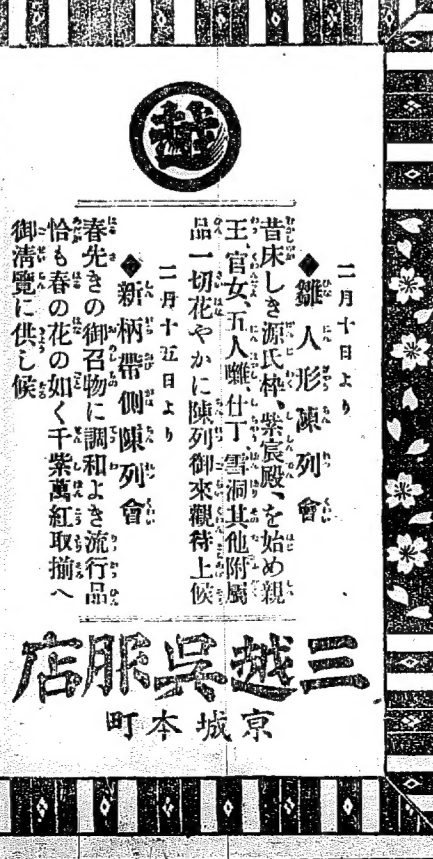 越
二月十日より
◆雛人形陳列會
昔床しき源氏枠、紫宸殿、を始め親
王、官女、五人囃、仕丁、雪洞其他附屬
品一切花やかに陳列御來觀待上候
二月十五日より
◆新柄帶側陳列會
春先きの御召物に調和よき流行品
恰も春の花の如く千紫萬紅取揃へ
御淸覽に供し候
三越呉服店
京城本町